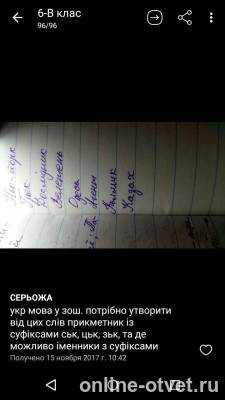 6-В клас
96/96
Нью-йорк
Дослідник
Велетень
Одеса
Калмик
Казах
СЕРЬОЖА
укр мова у зош. потрібно утворити
від цих слів прикметник із
суфіксами ськ, цьк, зьк, та де
можливо іменники з суфіксами
Получено 15 ноября 2017 г. 10:42
online-otvet.ru